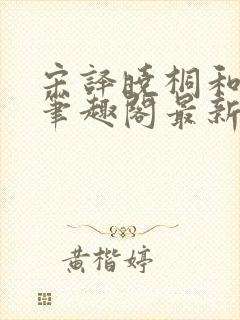 宋译晓桐和
笔趣阁最新
黄楷婷